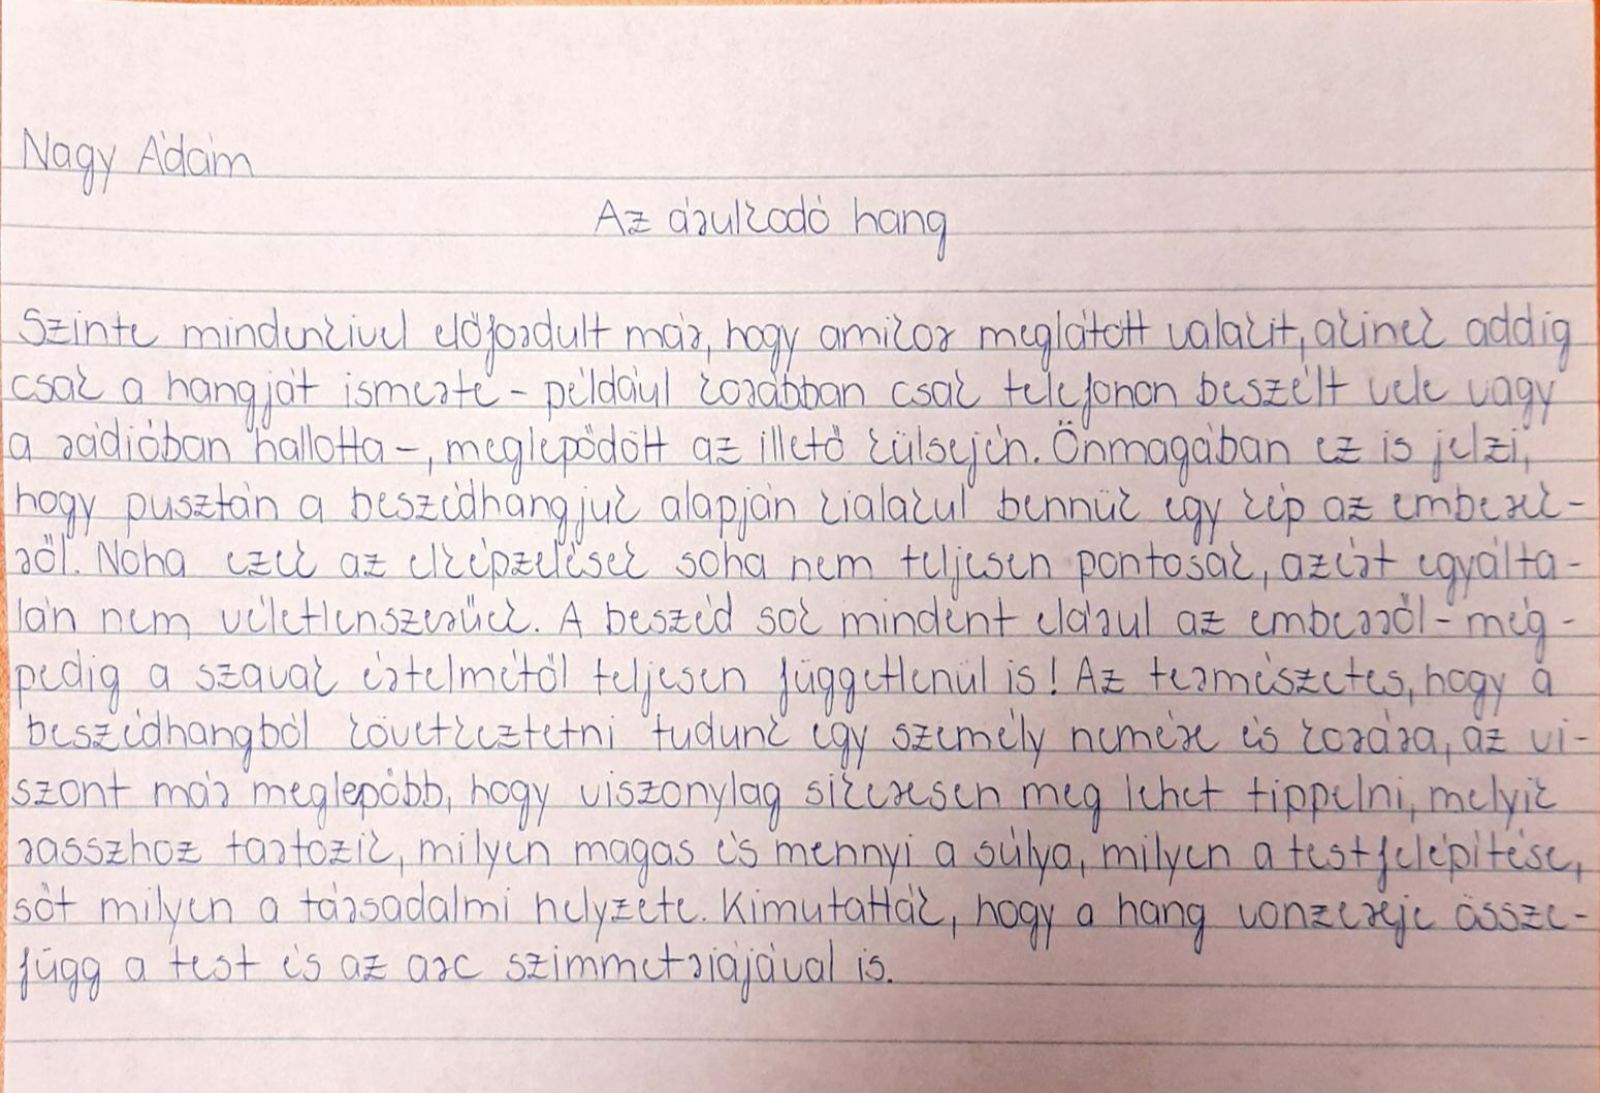 Nagy Ádám
Az árulkodó hang
Szinte mindenkivel előfordult már, hogy amikor meglátott valakit, akinek addig
csak a hangját ismerte – például korábban csak telefonon beszélt vele vagy
a rádióban hallotta –, meglepődött az illető külsején. Önmagában ez is jelzi,
hogy pusztán a beszédhangjuk alapján kialakul bennük egy kép az emberek-
ről. Noha ezek az elképzelések soha nem teljesen pontosak, azért egyálta-
lán nem véletlenszerűek. A beszéd sok mindent elárul az emberről – még-
pedig a szavak értelmétől teljesen függetlenül is! Az természetes, hogy a
beszédhangból következtetni tudunk egy személy nemére és korára, az vi-
szont már meglepőbb, hogy viszonylag sikeresen meg lehet tippelni, melyik
rasszhoz tartozik, milyen magas és mennyi a súlya, milyen a testfelépítése,
sőt milyen a társadalmi helyzete. Kimutatták, hogy a hang vonzereje össze-
függ a test és az arc szimmetriájával is.